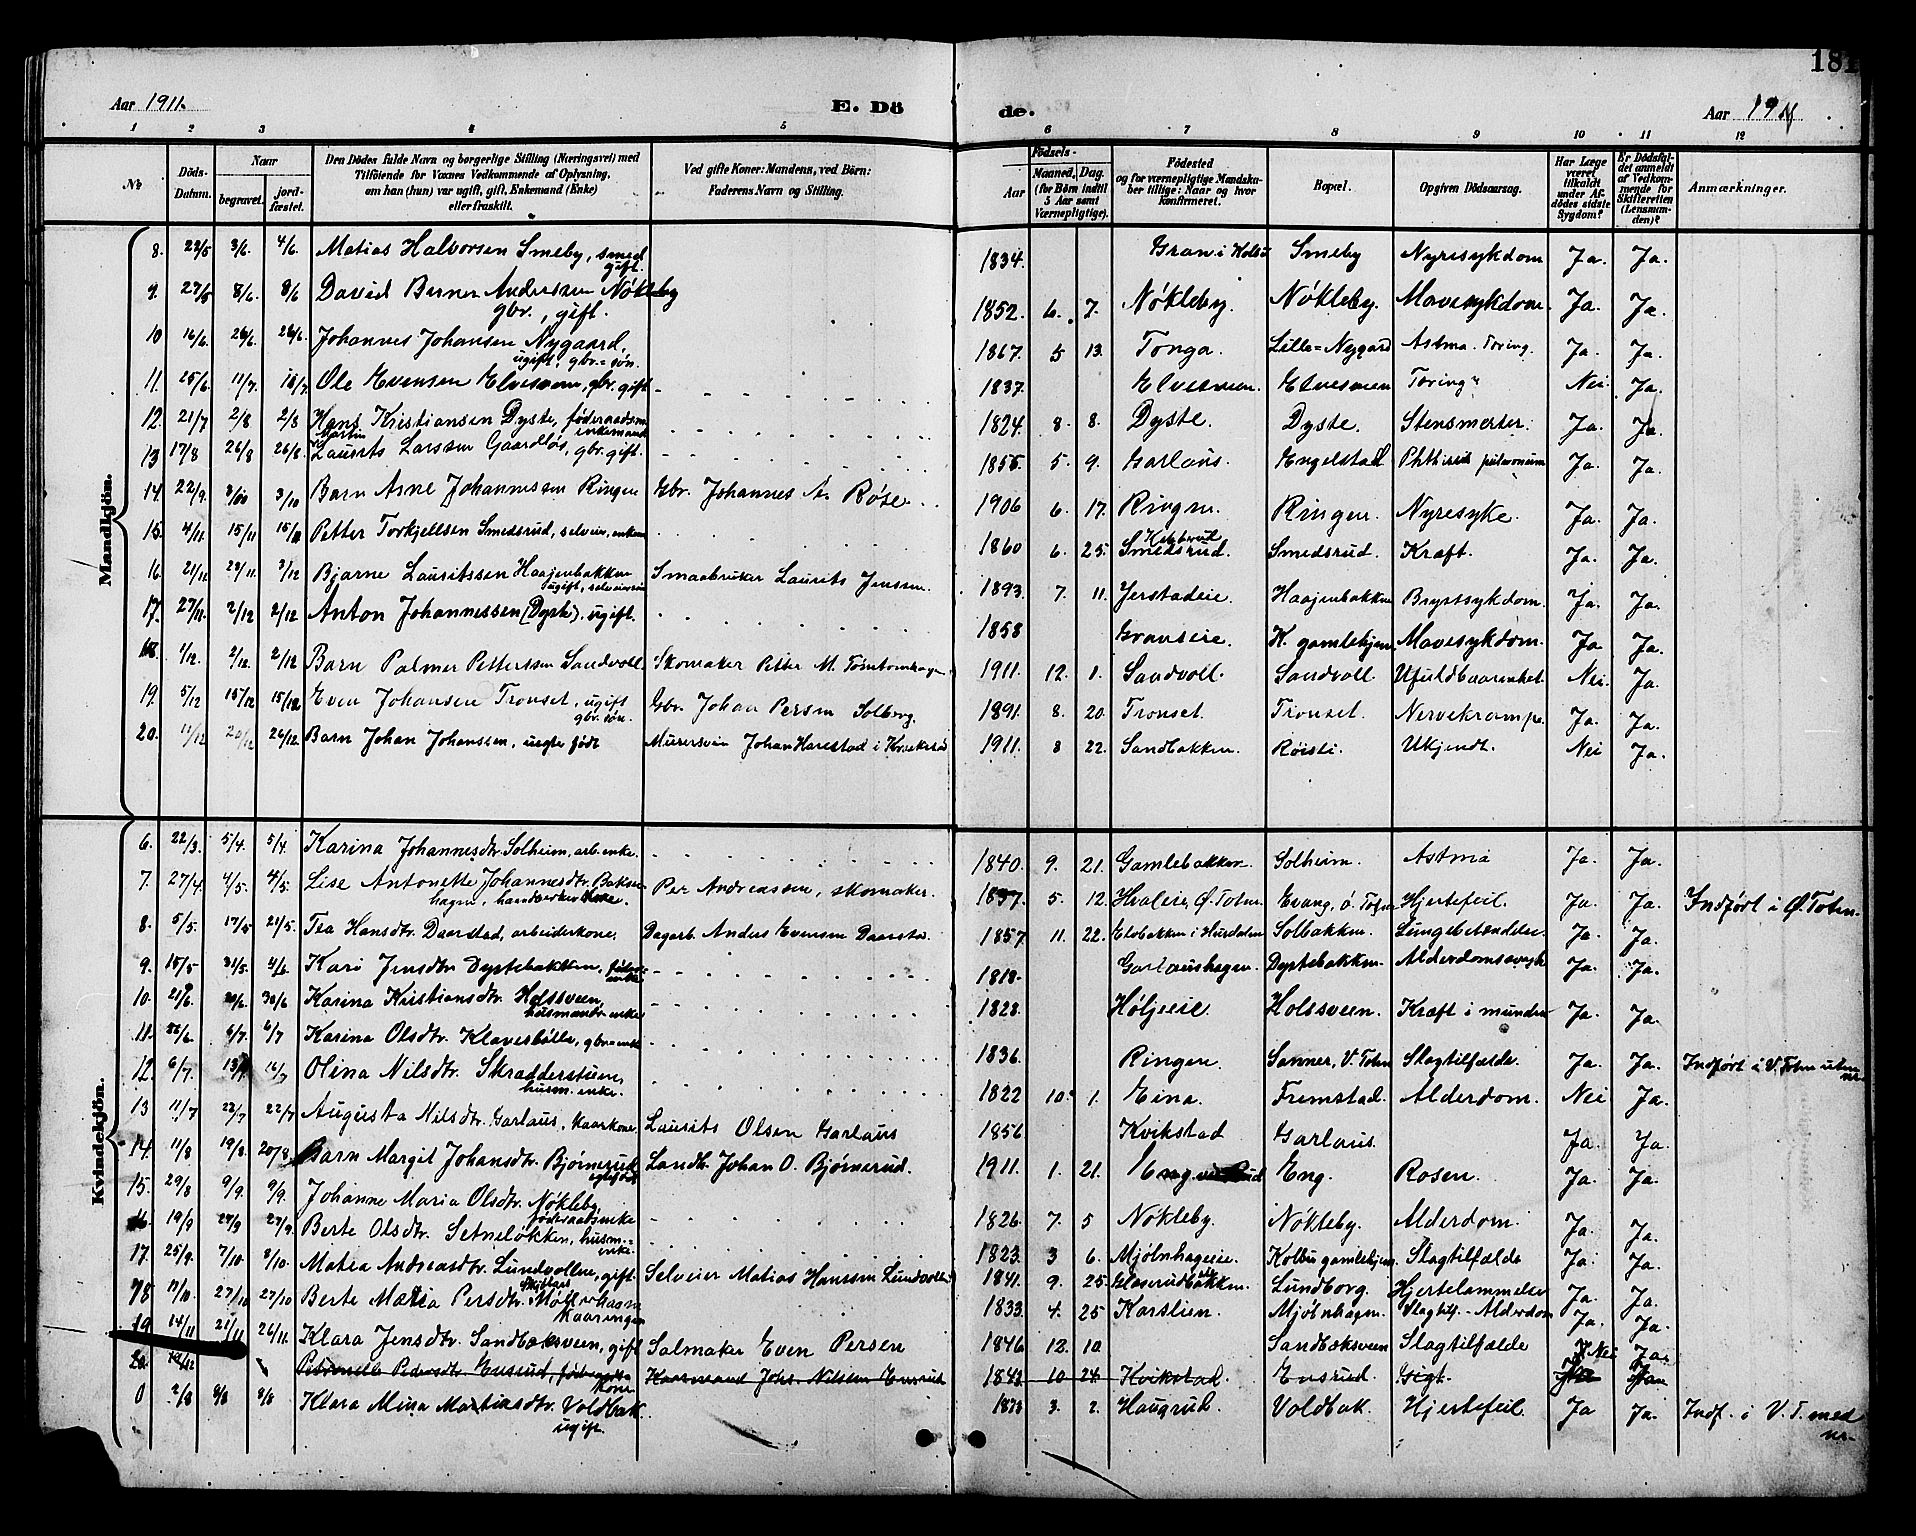 181
Aar 1911.
E. Dö
de.
Aar 1911
1 2 3 4 5 6 7 8 9 10 11 12
№
Döds-Datum.
Naar
begravet.
jord-fæstet.
Den Dödes fulde Navn og borgerlige Stilling (Næringsvei) med
Tilföiende for Voxnes Vedkommende af Oplysning,
om han (hun) var ugift, gift, Enkemand (Enke)
eller fraskilt.
Ved gifte Koner: Mandens, ved Börn:
Faderens Navn og Stilling.
Födsels-
Aar
Maaned, Dag.
(for Börn indtil
5 Aar samt
Værnepligtige).
Födested
og for værnepligtige Mandska-
ber tillige: Naar og hvor
konfirmeret.
Bopæl.
Opgiven Dödsaarsag.
Har Læge
været
tilkaldt
under Af-
dödes sidste
Sygdom?
Er Dödsfal-
det anmeldt
af Vedkom-
mende for
Skifteretten
(Lensman-
den)?
Anmærkninger.
Mandkjön.
8. 3/6. 4/6. Matias Halvorsen Smeby, smed gift. 1834. Gran i Smeby Nyresykdom Ja. Ja.
9. 27/5 8/6. 8/6 David Berner Anderssen Nökleby gbr., gift. 1852. 6. 7. Nökleby. Nökleby. Mavesykdom Ja. Ja.
10 16/6. 26/6. 26/6. Johannes Johansen Nygaard, ugift, gbr.=søn. 1867. 5 13. Tonga. Lille=Nygard Astma. Tæring. Ja. Ja.
11. 25/6. 11/7. 16/7. Ole Evensen Elvesveen, gbr. gift 1837. Elvesveen. Elvesveen Tæring Nei Ja.
12. 21/7 2/8 2/8 Hans Kristiansen Dyste, föderaadsm. enkemand 1824. 8. 8. Dyste. Dyste. Stensmerter. Ja. Ja.
13 17/8 26/8 26/8 Laurits Martin Larssen Gaardløs, gbr. gift. 1855. 5. 9. Garlaus. Engelstad Phthisis pulmonum Ja. Ja.
14. 22/9. 3/10 3/10 Barn Arne Johannessen Ringen Gbr. Johannes A. Røise. 1906 6. 17. Ringen. Ringen. Nyresyke. Ja. Ja.
15. 4/11. 15/11 15/11 Petter Torkjellsen Smedsrud, selveier, enkem. 1860 6. 25 Smedsrud. Smedsrud. Kræft. Ja. Ja.
16. 21/11. 3/12 Bjarne Lauritssen Haajenbakken ugift, Smaabruker Laurits Jenssen. 1893. 7. 11. Jerstadeie. Haajenbakken Brystsykdom. Ja. Ja.
17. 27/11. 2/12 2/12 Anton Johannessen (Dyste), ugift. 1858 Granseie. K. gamlehjem Mavesykdom. Ja. Ja.
18. 1/12. 2/12. 2/12 Barn Palmer Petterssen Sandvoll Skomaker Petter M. Tømtomhagen 1911. 12. 1. Sandvoll. Sandvoll. Ufuldbaarenhet. Nei. Ja.
19. 5/12 15/12 15/12 Even Johansen Tronset, ugift gbr. søn. Gbr. Johan Persen Solberg. 1891. 8. 20. Tronset. Tronset. Nervekrampe. Ja. Ja.
20. 11/12 20/12 26/12 Barn Johan Johanssen, uegte født Murersvein Johan Harestad i 1911. 8 22. Sandbakken. Røisli. Ukjendt. Nei Ja.
Kvindekjön.
6. 22/3. 5/4. 5/4. Karina Johannesdtr. Solheim, arb. enke. 1840. 9. 21. Gamlebakken. Solheim. Astma Ja. Ja.
7. 27/4. 4/5. 4/5. Lise Antonette Johannesdtr. Baksehagen, haandverkerkone. Per Andreassen, skomaker. 1837. 5. 12. Hvaleie, Ø. Toten. Evang, Ö. Toten Hjertefeil. Ja. Ja. Indført i Ø. Toten.
8. 5/5. 17/5 21/5. Tea Hansdtr. Daarstad, arbeiderkone. Dagarb. Anders Evensen Daarstad. 1857. 11. 22. i Hurdalen Solbakken. Lungebetændelse. Ja. Ja.
9. 15/5 31/5. 4/6. Kari Jensdtr. Dystebakken, enke 1818. Garlaushagen. Dystebakken. Ja. Ja.
10. 21/6. 30/6 Karina Kristiansdtr. Holssveen, husmandsenke 1828. Høljeeie Holssveen. Kræft i munden Ja. Ja.
11. 6/7. 6/7 Karina Olsdtr. Klavesbölle, gbr=enke 1836. Ringen Sanner, V. Toten Slagtilfælde. Ja. Ja. Indført i V. Toten uten nr.
12. 6/7. 16/7 Olina Nilsdtr. Skradderstuen, husm. enke. 1822 10. 1. Eina. Fremstad. Alderdom. Nei Ja.
13 11/7 22/7 22/7 Augusta Nilsdtr. Garlaus, kaarkone. Laurits Olsen Garlaus 1856 Kvikstad Garlaus. Ja. Ja.
14. 11/8 19/8. 20/8. Barn Margit Johansdtr. Bjørnerud Landh. Johan O. Bjørnerud. 1911. 1. 21. Eng. Rosen. Ja. Ja.
15. 29/8 9/9. 9/9. Johanne Maria Olsdtr. Nökleby, föderaadsenke 1826. 7. 5 Nökleby. Nökleby. Alderdom. Ja. Ja.
16 19/9 27/9 27/9 Berte Olsdtr. Setneløkken, husm.=enke. 1823. 3 6. Mjølnhageeie. Kolbu gamlehjem Slagtilfælde Ja. Ja.
17. 25/9. 7/10 8/10. Matea Andreasdtr. Lundvollen, gift. Selveier Matias Hanssen Lundvollen 1841. 9. 25. Lundborg. Hjertelammelse Ja. Ja.
18. 17/10. 27/10 27/10 Berte Maria Persdtr. Kaaringen 1833. 4. 25 Karslien. Mjølnhagen. Slagtilf. - Alderdom Ja. Ja.
19 14/11 21/11 26/11. Klara Jensdtr. Sandbæksveen, gift Salmaker Even Persen 1846 12. 10. Sandbæksveen Slagtilfælde Nei Ja.
20. Petronelle Pedersdtr. Ensrud, kone Kaarmand Johs. Nilssen Ensrud 1843 10 24. Kvikstad. Ensrud. Gigt.
0 2/8 8/8 8/8 Klara Mina Mathiasdtr. Voldbak. ugift. 1878 3. 2. Haugrud. Voldbak. Hjertefeil. Ja Ja. Indf. i V. T. med nr.